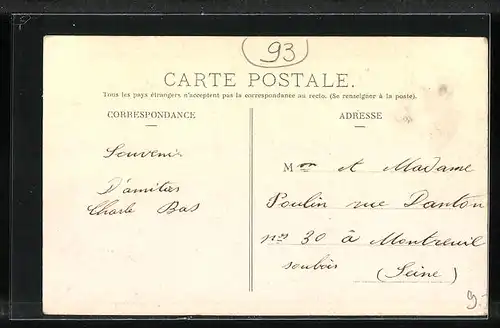 93
CARTE POSTALE.
Tous les pays étrangers n'acceptent pas la correspondance au recto. (Se renseigner à la poste).
CORRESPONDANCE
ADRESSE
Souvenir
D'amitiés
Charle Bas
Mr et Madame
Poulin rue Danton
no 30 à Montreuil
soubois
(Seine)
9.-